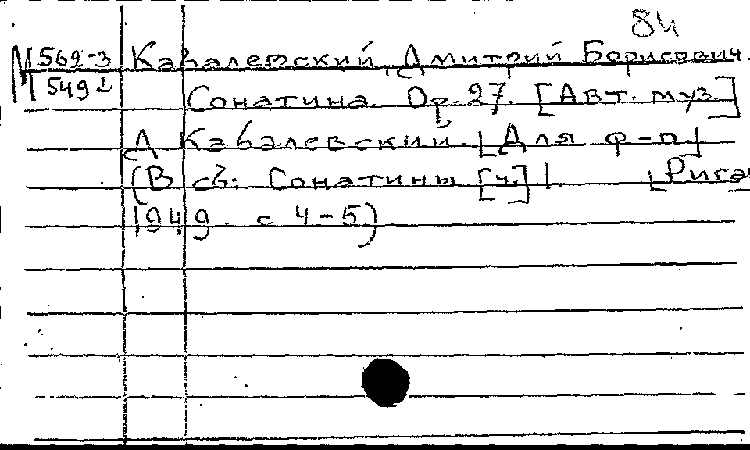 84
М 569-3 Кабалевский, Дмитрий Борисович.
549 Сонатина. Ор. 27. [Авт. муз.]
Д Кабалевский. [Для ф-п]
(В сб: Сонатины [ч.] I [Рига
1949. с 4-5)